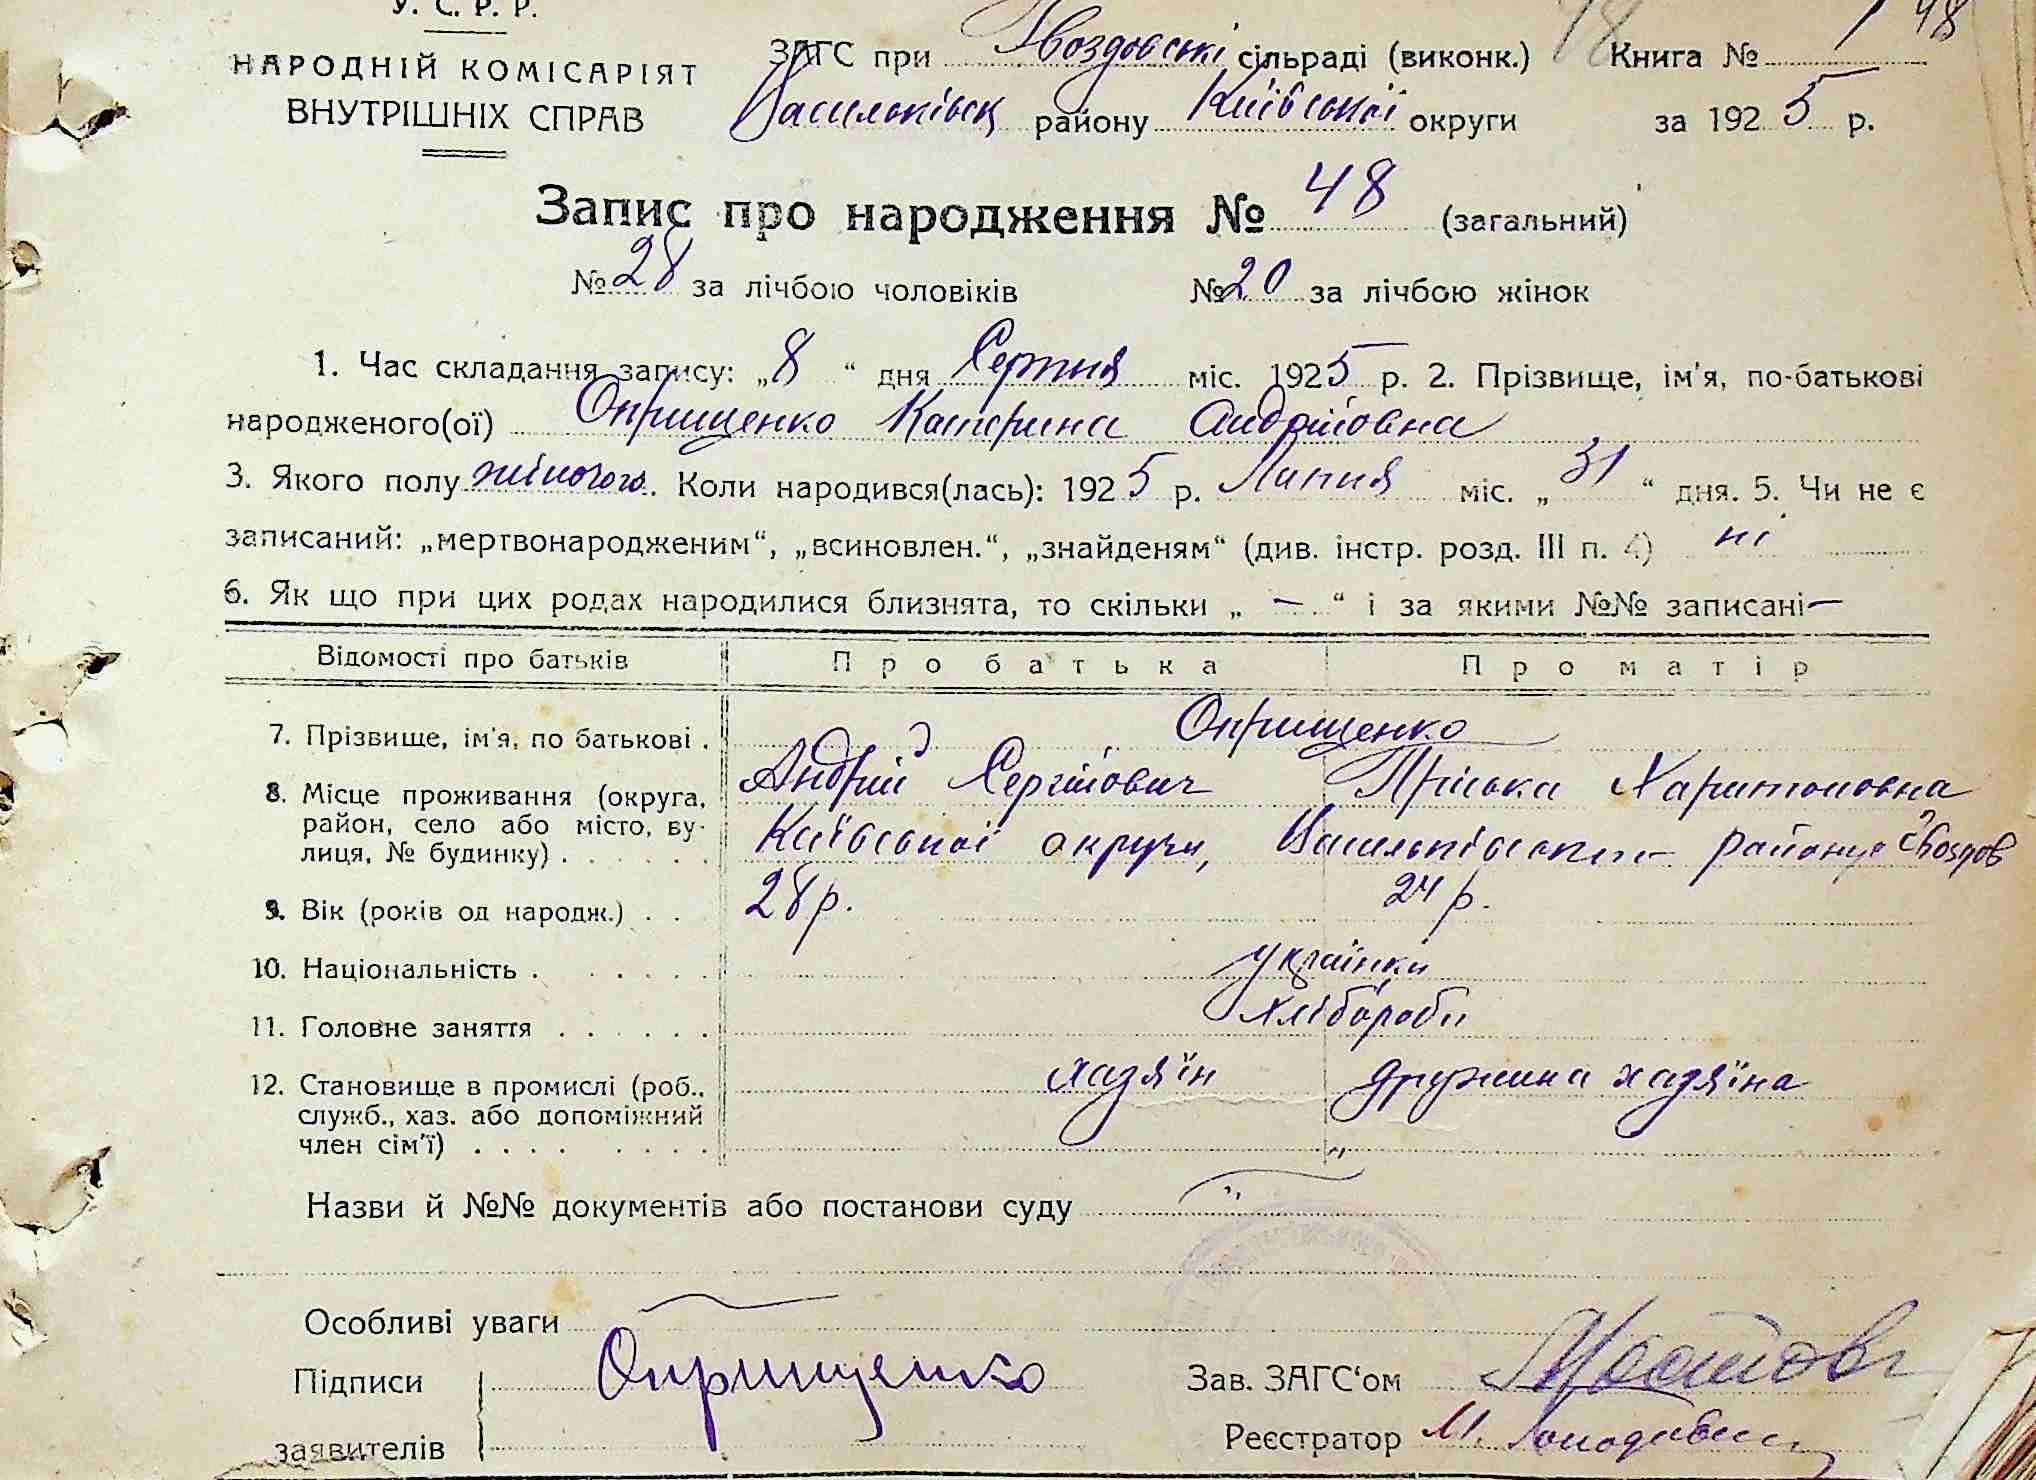 У. С. Р. Р.
НАРОДНІЙ КОМІСАРІЯТ
ВНУТРІШНІХ СПРАВ
ЗАГС при Гвоздовські сільраді (виконк.) Книга № 48
Васильківськ району Київської округи за 1925 р.
Запис про народження № 48 (загальний)
№ 28 за лічбою чоловіків № 20 за лічбою жінок
1. Час складання запису: „8“ дня Серпня міс. 1925 р. 2. Прізвище, ім'я, по-батькові
народженого(ої) Оприщенко Катерина Андріївна
3. Якого полу жіночого. Коли народився(лась): 1925 р. Липня міс. „31“ дня. 5. Чи не є
записаний: „мертвонародженим“, „всиновлен.“, „знайденям“ (див. інстр. розд. III п. 4) ні
6. Як що при цих родах народилися близнята, то скільки „ — “ і за якими №№ записані —
Відомості про батьків Про батька Про матір
7. Прізвище, ім'я, по батькові . Оприщенко
Андрій Сергійович Пріська Харитоновна
8. Місце проживання (округа,
район, село або місто, ву-
лиця, № будинку) . . . . . . Київської округи, району Гвоздов
9. Вік (років од народж.) . . 28 р. 24 р.
10. Національність . . . . . . українки
11. Головне заняття . . . . . . хлібороби
12. Становище в промислі (роб.,
служб., хаз. або допоміжний
член сім'ї) . . . . . . . . хазяїн дружина хазяїна
Назви й №№ документів або постанови суду
Особливі уваги
Підписи Оприщенко Зав. ЗАГС‘ом
заявителів Реєстратор М.